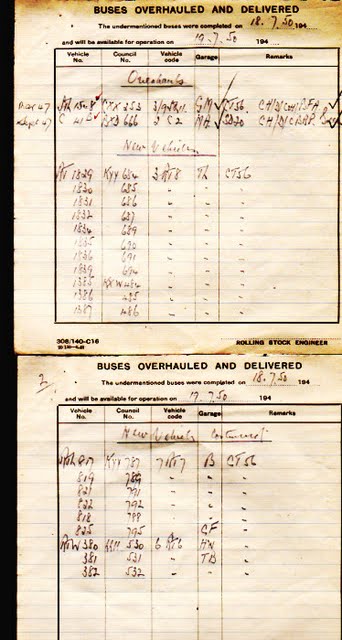 BUSES OVERHAULED AND DELIVERED
The undermentioned buses were completed on 18.7.50 194
and will be available for operation on 19.7.50 194
Vehicle No. Council No. Vehicle code Garage Remarks
Overhauls
GM CT56
666 2 S2
New Vehicles
RT 1829 KYY 684 3 RT8 TL CT56
1830 685 " " "
1831 686 " " "
1832 687 " " "
1834 689 " " "
1835 690 " " "
1836 691 " " "
1839 694 " " "
1385 KXW 484 " " "
1386 485 " " "
1387 486 " " "
308/140-C16 ROLLING STOCK ENGINEER
2
BUSES OVERHAULED AND DELIVERED
The undermentioned buses were completed on 18.7.50 194
and will be available for operation on 19.7.50 194
Vehicle No. Council No. Vehicle code Garage Remarks
New Vehicles Continued
817 KYY 787 7 RT7 B CT56
819 789 " " "
821 791 " " "
822 792 " " "
818 788 " " "
825 795 " GF "
RTW 380 530 6 RT6 HN "
381 531 " TB "
382 532 " " "